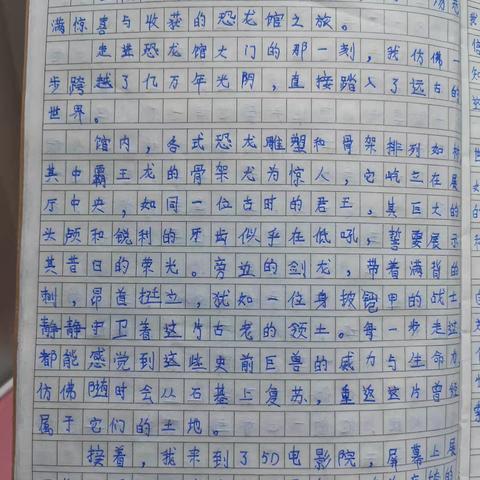 满惊喜与收获的恐龙馆之旅。
走进恐龙馆大门的那一刻，我仿佛一
步跨越了亿万年光阴，直接踏入了远古的
世界。
馆内，各式恐龙雕塑和骨架排列如
其中霸王龙的骨架龙为惊人，它屹立在展
厅中央，如同一位古时的君王，其巨大的
头颅和锐利的牙齿似乎在低吼，誓要展示
其昔日的荣光。旁边的剑龙，带着满背的
刺，昂首挺立，犹如一位身披铠甲的战士
静静守卫着这片古老的领土。每一步走过
都能感觉到这些史前巨兽的威力与生命力
仿佛随时会从石基上复苏，重返这片曾经
属于它们的土地。
接着，我来到了5D电影院，屏幕上展